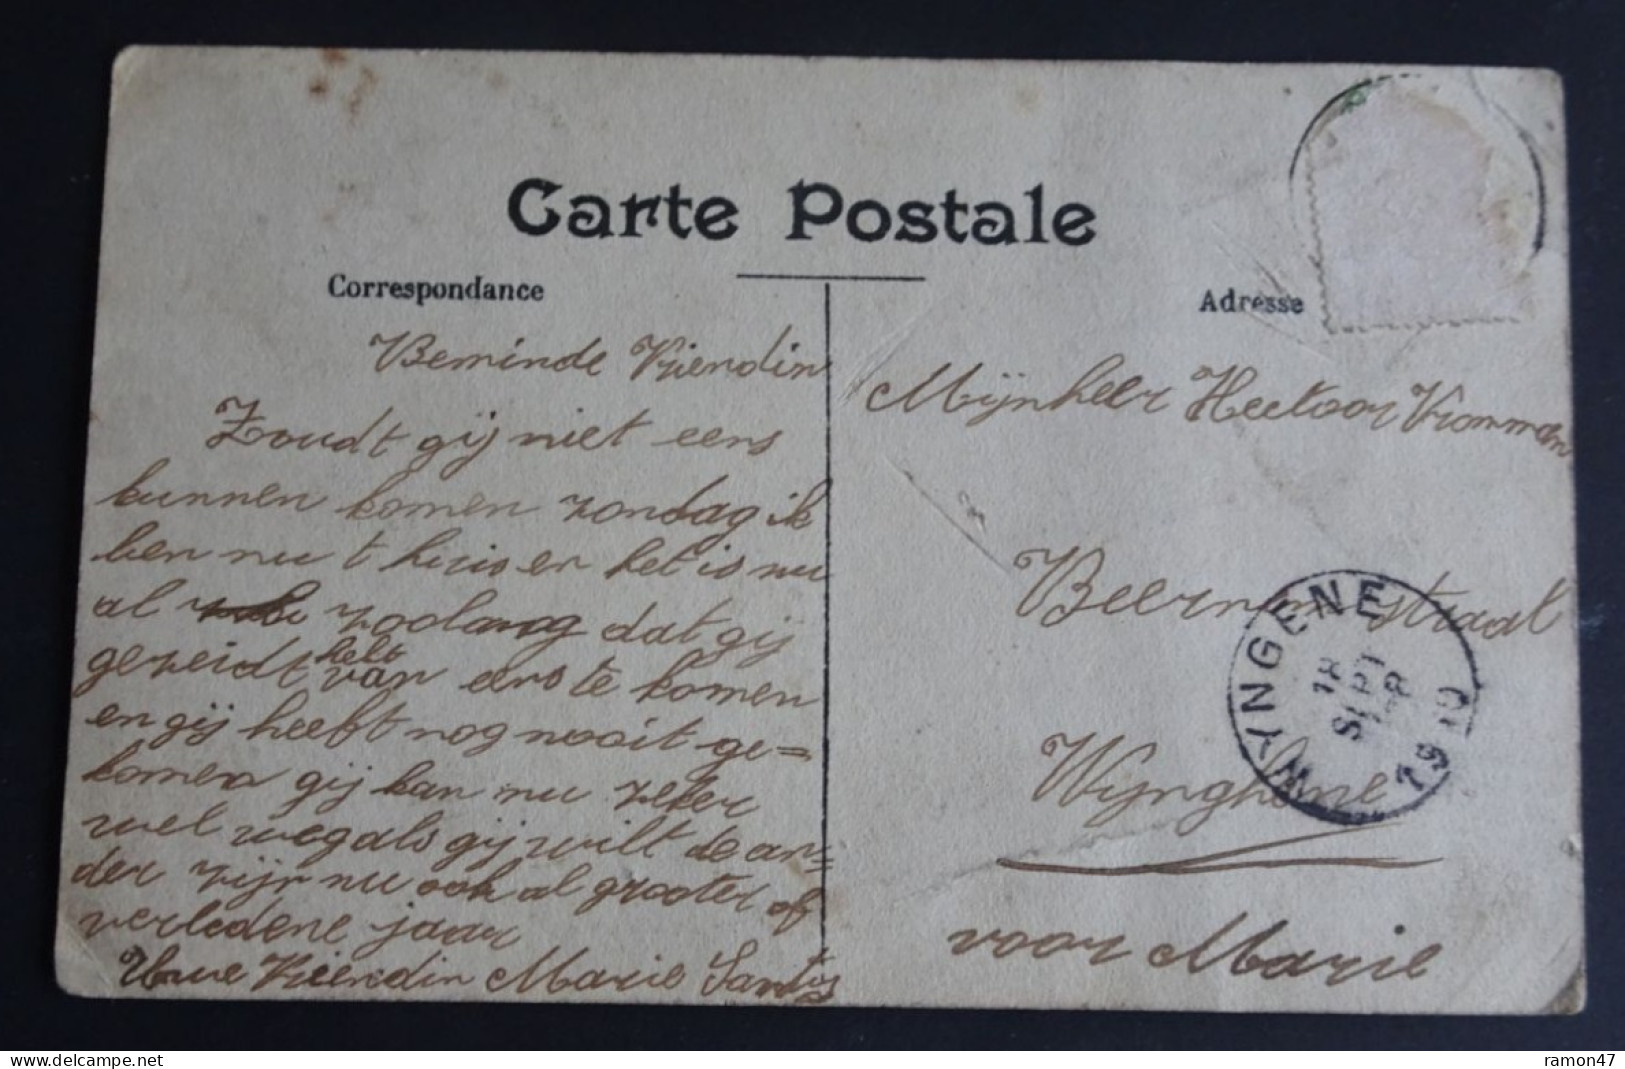 Carte Postale
Correspondance
Adresse
Beminde Vriendin
Zoudt gij niet eens
kunnen komen zondag ik
ben nu t huis en het is nu
al zoolang dat gij
gezeidt helt van eens te komen
en gij heeft nog nooit ge=
komen gij kan nu zeker
wel weg als gij wilt de an=
der zijn nu ook al grooter of
verledene jaar
Uwe Vriendin Marie Santys
Mijnheer Hectoor Vromman
straat
Wynghene
voor Marie
WYNGENE
18
SEPT
1910
delcampe.net
ramon47